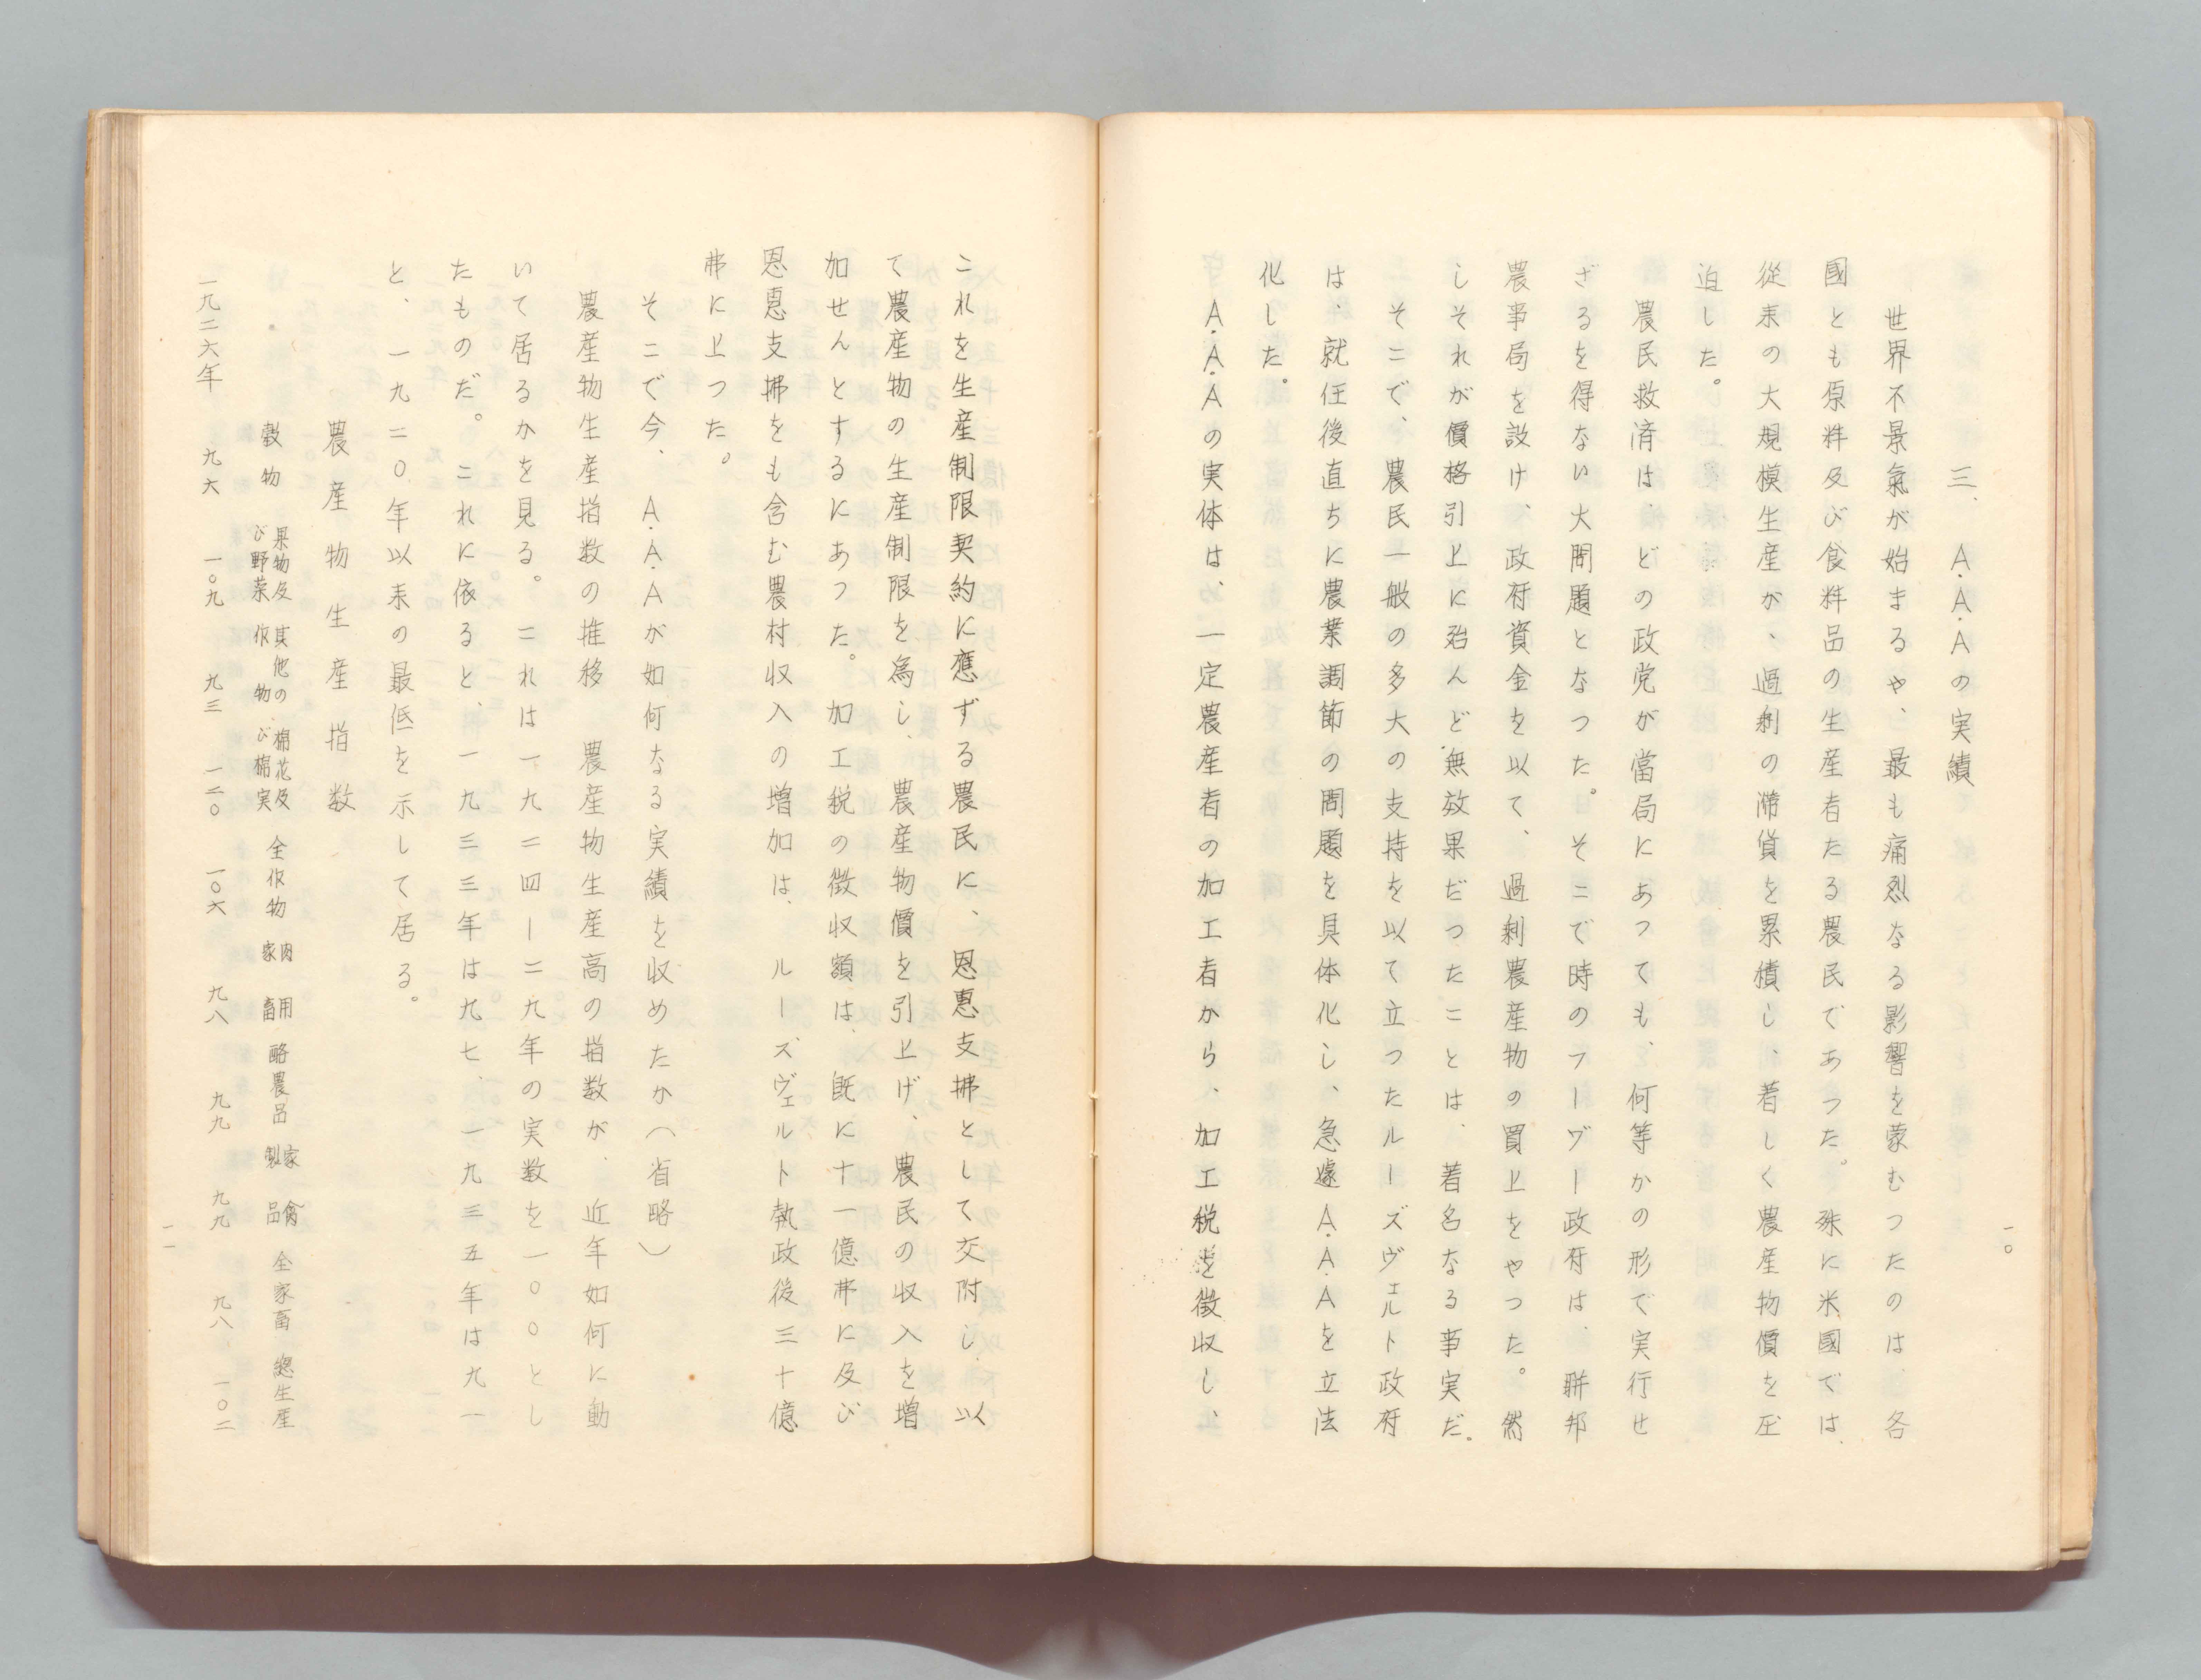 一〇
三、A・A・Aの実績
世界不景氣が始まるや、最も痛烈なる影響を蒙むつたのは、各
國とも原料及び食料品の生産者たる農民であつた。殊に米國では、
從来の大規模生産が、過剰の滯貨を累積し、著しく農産物價を圧
迫した。
農民救済は、どの政党が當局にあつても、何等かの形で実行せ
ざるを得ない大問題となつた。そこで時のフーヴー政府は、聯邦
農事局を設け、政府資金を以て、過剰農産物の買上をやつた。然
しそれが價格引上に殆んど無效果だつたことは、著名なる事実だ。
そこで、農民一般の多大の支持を以て立つたルーズヴェルト政府
は、就任後直ちに農業調節の問題を具体化し、急遽A・A・Aを立法
化した。
A・A・Aの実体は、一定農産者の加工者から、加工税を徴収し、
これを生産制限契約に應ずる農民に、恩惠支拂として交附し、以
て農産物の生産制限を為し、農産物價を引上げ、農民の収入を増
加せんとするにあつた。加工税の徴収額は、既に十一億弗に及び
恩惠支拂をも含む農村収入の増加は、ルーズヴェルト執政後三十億
弗に上つた。
そこで今、A・A・Aが如何なる実績を收めたか（省略）
農産物生産指数の推移　農産物生産高の指数が、近年如何に動
いて居るかを見る。これは一九二四ー二九年の実数を一〇〇とし
たものだ。これに依ると、一九三三年は九七、一九三五年は九一
と、一九二〇年以来の最低を示して居る。
農産物生産指数
穀物　果物及び野菜　其他の作物　棉花及び棉実　全作物　肉用家畜　酪農品　家禽製品　全家畜　總生産
一九二六年　九六　一〇九　九三　一二〇　一〇六　九八　九九　九九　九八　一〇二
一一